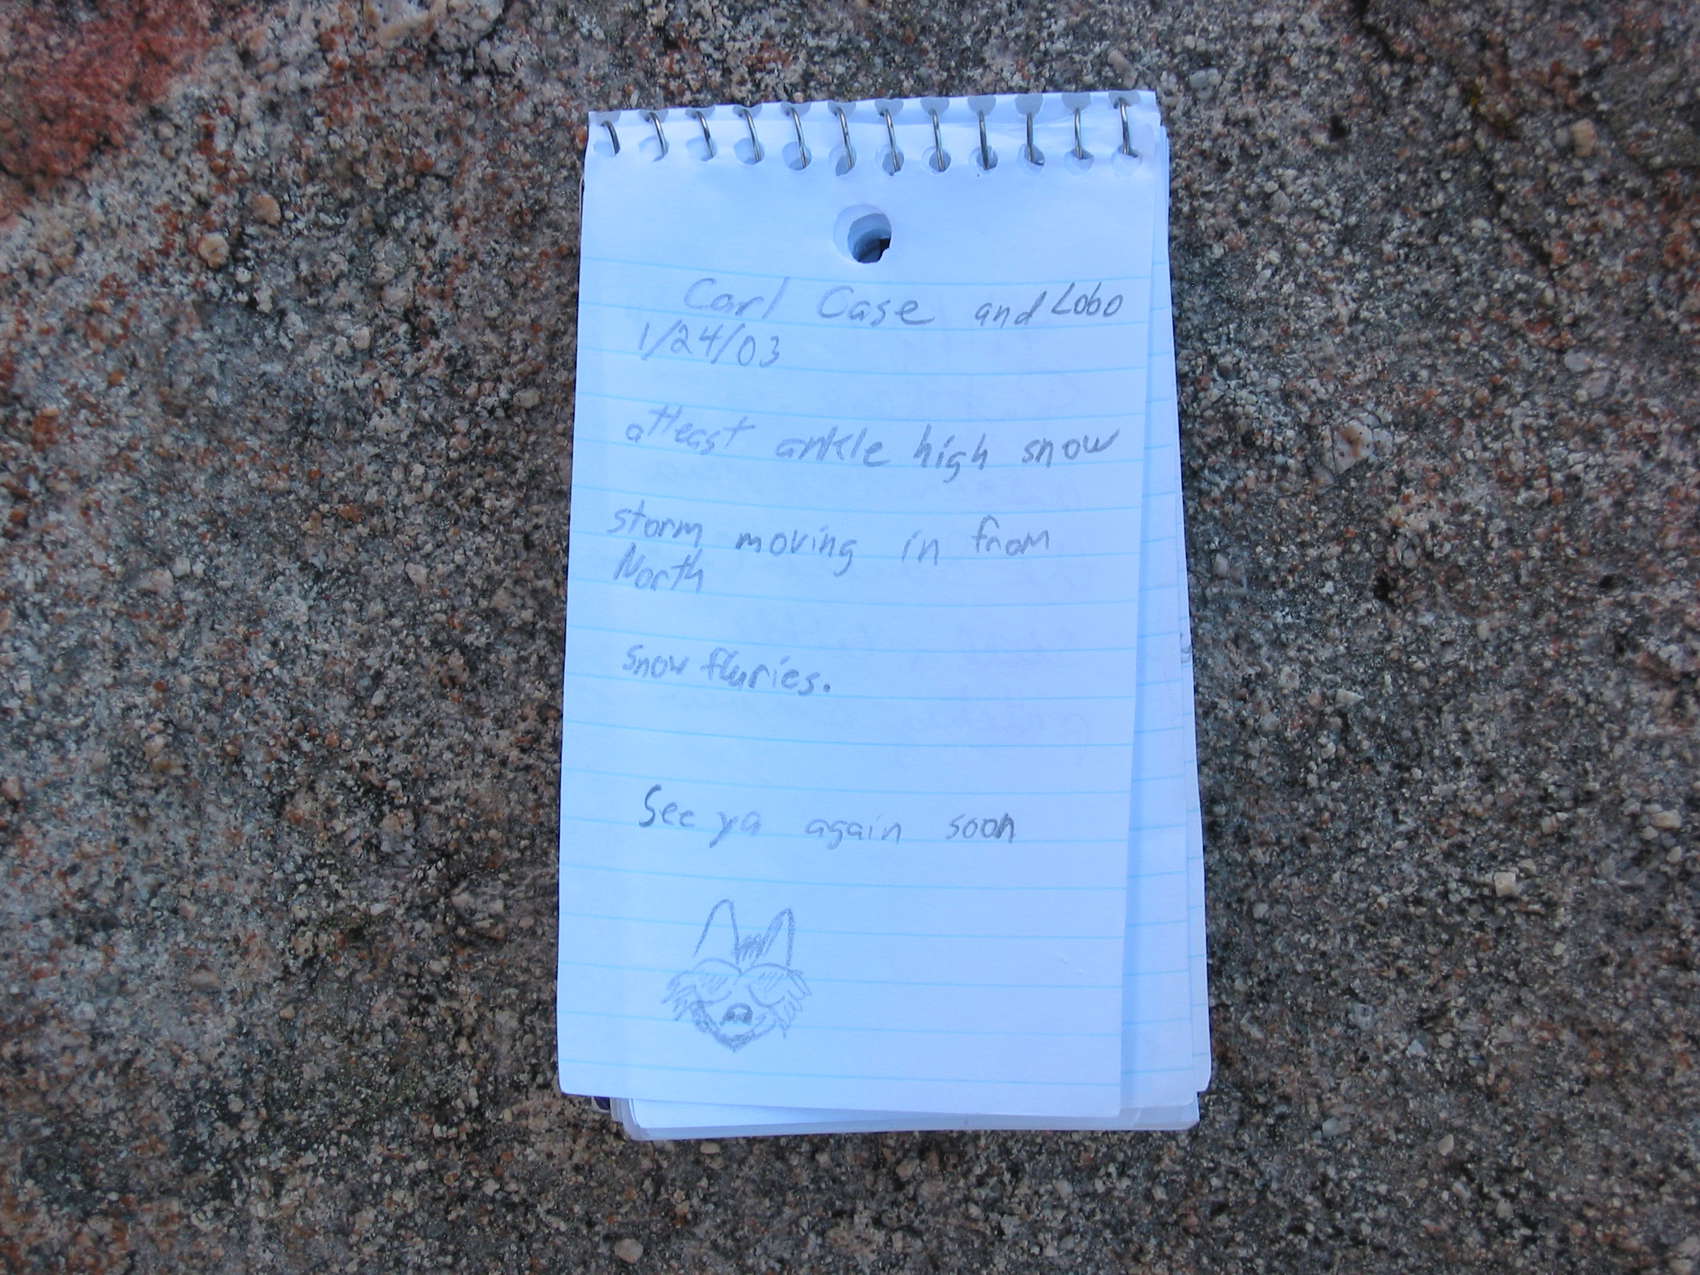 Carl Case and Lobo
1/24/03
atleast ankle high snow
storm moving in from
North
snow fluries.
See ya again soon